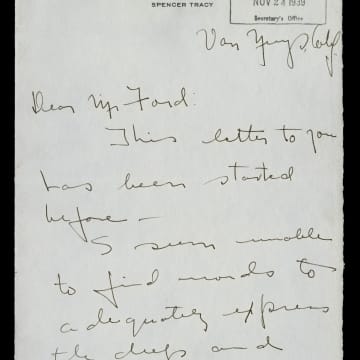 SPENCER TRACY
NOV 24 1939
Secretary's Office
Van Nuys, Calif.
Dear Mr Ford:
This letter to you
has been started
before —
I seem unable
to find words to
adequately express
the deep and